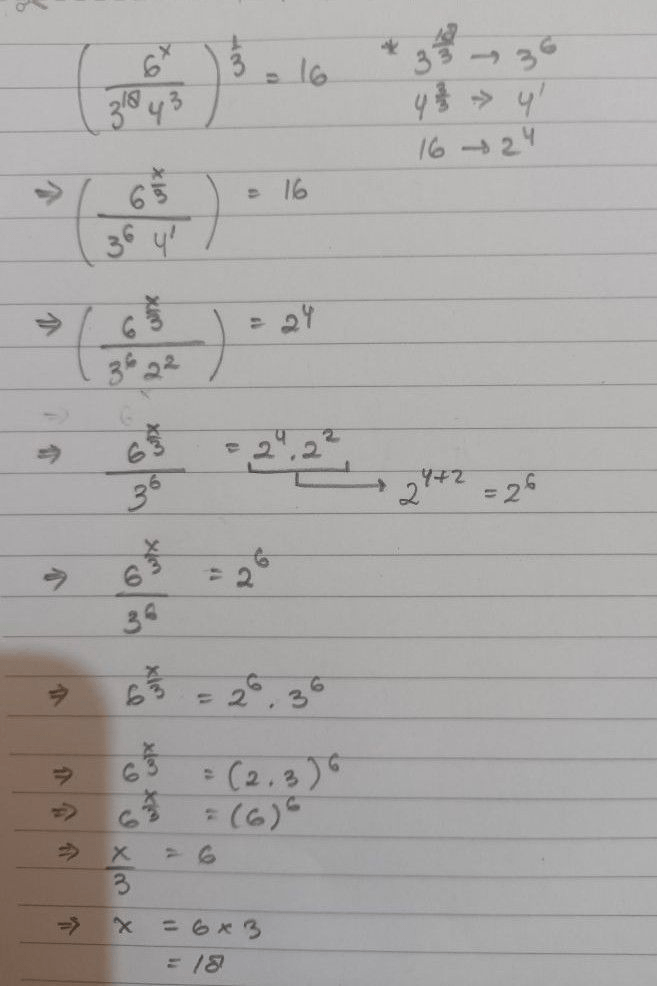 (6^x / 3^18 4^3)^(1/3) = 16
* 3^(18/3) → 3^6
4^(3/3) → 4^1
16 → 2^4
⇒ (6^(x/3) / 3^6 4^1) = 16
⇒ (6^(x/3) / 3^6 2^2) = 2^4
⇒ 6^(x/3) / 3^6 = 2^4 . 2^2 → 2^(4+2) = 2^6
⇒ 6^(x/3) / 3^6 = 2^6
⇒ 6^(x/3) = 2^6 . 3^6
⇒ 6^(x/3) = (2.3)^6
⇒ 6^(x/3) = (6)^6
⇒ x/3 = 6
⇒ x = 6 × 3
= 18